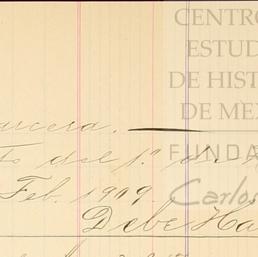 CENTRO
ESTUD
DE HIST
DE MÉX
FUNDA
Carlos
arcera.
to del 1.º de
Feb. 1909.
Debe Ha